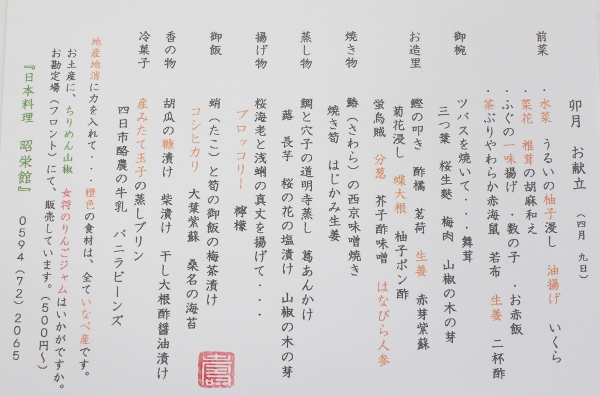 卯月　お献立　（四月　九日）
前菜　・水菜　うるいの柚子浸し　油揚げ　いくら
・菜花　椎茸の胡麻和え
・ふぐの一味揚げ　・数の子　・お赤飯
・茶ぶりやわらか赤海鼠　若布　生姜　二杯酢
御椀　ツバスを焼いて・・・舞茸
三つ葉　桜生麩　梅肉　山椒の木の芽
お造里　鰹の叩き　酢橘　茗荷　生姜　赤芽紫蘇
菊花浸し　蝶大根　柚子ポン酢
蛍烏賊　分葱　芥子酢味噌　はなびら人参
焼き物　鰆（さわら）の西京味噌焼き
焼き筍　はじかみ生姜
蒸し物　鯛と穴子の道明寺蒸し　葛あんかけ
蕗　長芋　桜の花の塩漬け　山椒の木の芽
揚げ物　桜海老と浅蜊の真丈を揚げて・・・
ブロッコリー　檸檬
御飯　蛸（たこ）と筍の御飯の梅茶漬け
コシヒカリ　大葉紫蘇　桑名の海苔
香の物　胡瓜の糠漬け　柴漬け　干し大根酢醤油漬け
冷菓子　産みたて玉子の蒸しプリン
四日市酪農の牛乳　バニラビーンズ
地産地消に力を入れて・・・橙色の食材は、全ていなべ産です。
お土産に、ちりめん山椒　女将のりんごジャムはいかがですか。
お勘定場（フロント）にて、販売しています。（５００円～）
『日本料理　昭栄館』　０５９４（７２）２０６５